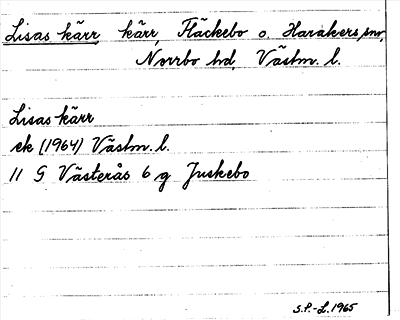 Lisas kärr, kärr, Fläckebo o. Harakers snr,
Norrbo hd, Västm. l.
Lisas kärr
ek (1964) Västm. l.
11 G Västerås 6 g Juskebo
S.P.-L. 1965